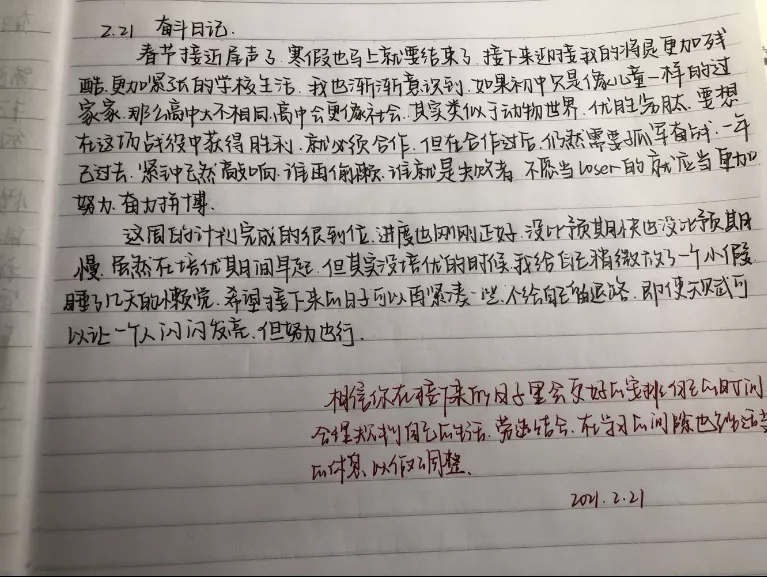 2.21 奋斗日记.
春节接近尾声了,寒假也马上就要结束了,接下来迎接我的将是更加残
酷,更加紧张的学校生活,我也渐渐意识到,如果初中只是像儿童一样的过
家家,那么高中大不相同,高中会更像社会,其实类似于动物世界,优胜劣汰,要想
在这场战役中获得胜利,就必须合作,但在合作过后,仍然需要孤军奋战,一年
已过去,紧钟已然敲响,谁再偷懒,谁就是失败者,不愿当loser的就应当更加
努力,奋力拼博.
这周的计划完成的很到位,进度也刚刚正好,没比预期快也没比预期
慢,虽然在培优期间早起,但其实没培优的时候,我给自己稍微放了一个小假,
睡了几天的懒觉,希望接下来的日子可以再紧凑一些,不给自己留退路,即使天赋可
以让一个人闪闪发亮,但努力也行.
相信你在接下来的日子里会更好的安排自己的时间
合理规划自己的生活,劳逸结合,在学习的间隙也适当
的休息,以做调整.
2021.2.21